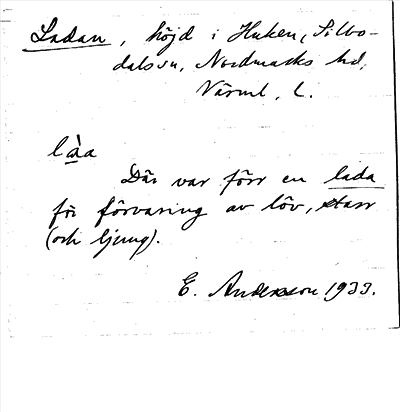 Ladan, höjd i Huken, Silbo-
dals sn, Nordmarks hd,
Värml, L.
làa
Där var förr en lada
för förvaring av löv, starr
(och ljung).
E. Anderson 1933.